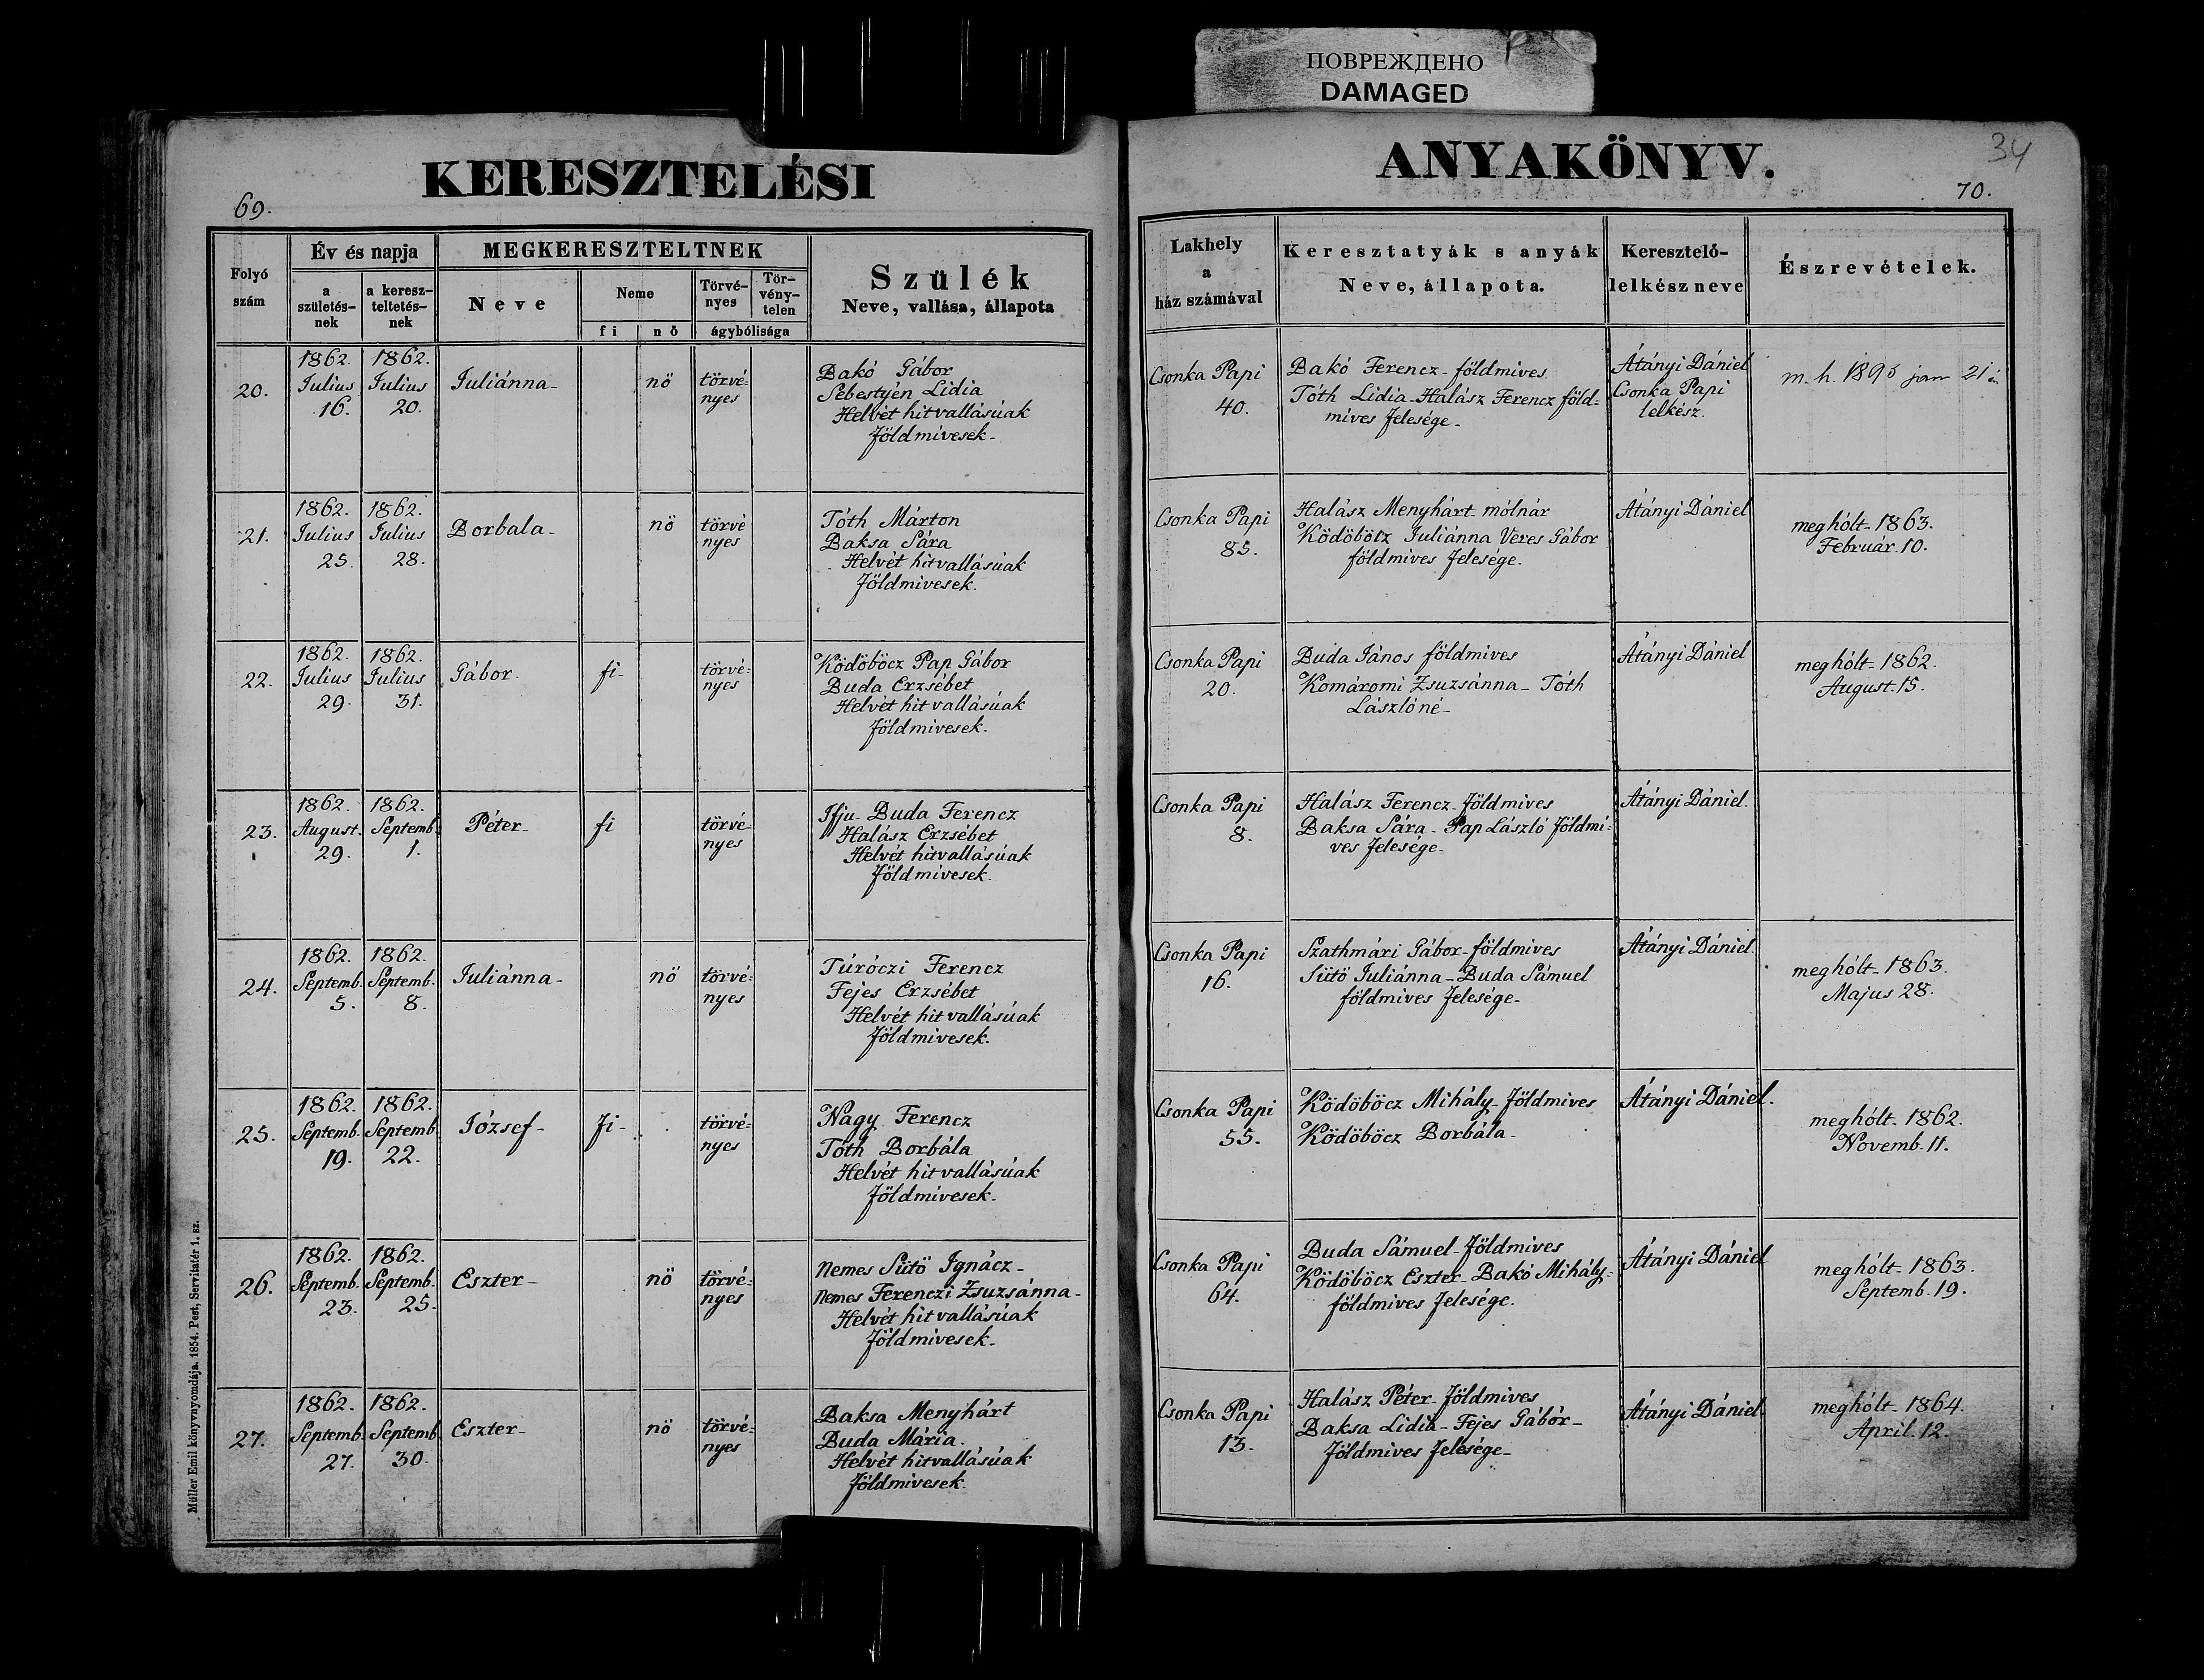 ПОВРЕЖДЕНО
DAMAGED
KERESZTELÉSI
69.
Folyó szám
Év és napja
a születés-nek
a keresz-teltetés-nek
MEGKERESZTELTNEK
Neve
Neme
fi
nő
Törvé-nyes
Tör-vény-telen
ágybólisága
Szülék
Neve, vallása, állapota
20.
1862. Julius 16.
1862. Julius 20.
Juliánna-
nö
törvé-nyes
Bakó Gábor
Sebestyén Lidia
Helvét hitvallásúak
földmivesek-
21.
1862. Julius 25.
1862. Julius 28.
Borbala-
nö
törvé nyes
Tóth Márton
Baksa Sára
Helvét hitvallásúak
földmivesek.
22.
1862. Julius 29.
1862. Julius 31.
Gábor.
fi-
törvé-nyes
Ködöböcz Pap Gábor
Buda Erzsébet
Helvét hit vallásúak
földmivesek.
23.
1862. August. 29.
1862. Septemb. 1.
Péter-
fi
törvé-nyes
Ifju- Buda Ferencz
Halász Erzsébet
Helvét hitvallásúak
földmivesek.
24.
1862. Septemb. 5.
1862. Septemb. 8.
Juliánna-
nö
törvé-nyes
Túróczi Ferencz
Fejes Erzsébet
Helvét hit vallásúak
földmivesek.
25.
1862. Septemb. 19.
1862. Septemb. 22.
József-
fi-
törvé-nyes
Nagy Ferencz
Tóth Borbála
Helvét hitvallásúak
földmivesek.
26.
1862. Septemb. 23.
1862. Septemb. 25.
Eszter-
nö
törvé-nyes
Nemes Sütö Ignácz-
Nemes Ferenczi Zsuzsánna-
Helvét hitvallásúak
földmivesek-
27.
1862. Septemb. 27.
1862. Septemb 30.
Eszter-
nö
törvé-nyes
Baksa Menyhárt
Buda Mária.
Helvét hitvallásúak
földmivesek.
Müller Emil könyvnyomdája. 1854. Pest, Servitatér 1. sz.
ANYAKÖNYV.
34
70.
Lakhely
a
ház számával
Keresztatyák s anyák
Neve, állapota.
Keresztelő-
lelkész neve
Észrevételek.
Csonka Papi
40.
Bakó Ferencz- földmives.
Tóth Lidia-Halász Ferencz föld-
mives felesége-
Átányi Dániel
Csonka Papi
lelkész.
m. h. 1895 jan 21
Csonka Papi
85.
Halász Menyhárt- mólnár
Ködöböcz Juliánna Veres Gábor
földmives felesége.
Átányi Dániel
meghólt- 1863.
Február. 10.
Csonka Papi
20.
Buda János földmives
Komáromi Zsuzsánna- Tóth
Lászlóné-
Átányi Dániel
meghólt- 1862.
August. 15.
Csonka Papi
8.
Halász Ferencz- földmives
Baksa Sára- Pap László földmi-
ves felesége-
Átányi Dániel.
Csonka Papi
16.
Szathmári Gábor- földmives
Sütö Juliánna- Buda Sámuel
földmives felesége-
Átányi Dániel.
meghólt- 1863.
Majus 28.
Csonka Papi
55.
Ködöböcz Mihály- földmives
Ködöböcz Borbála-
Átányi Dániel.
meghólt- 1862.
Novemb. 11.
Csonka Papi
64.
Buda Sámuel- földmives
Ködöböcz Eszter- Bakó Mihály-
földmives felesége.
Átányi Dániel
meghólt- 1863.
Septemb. 19.
Csonka Papi
13.
Halász Péter- földmives
Baksa Lidia- Fejes Gábór-
földmives felesége-
Átányi Dániel
meghólt- 1864.
April. 12.